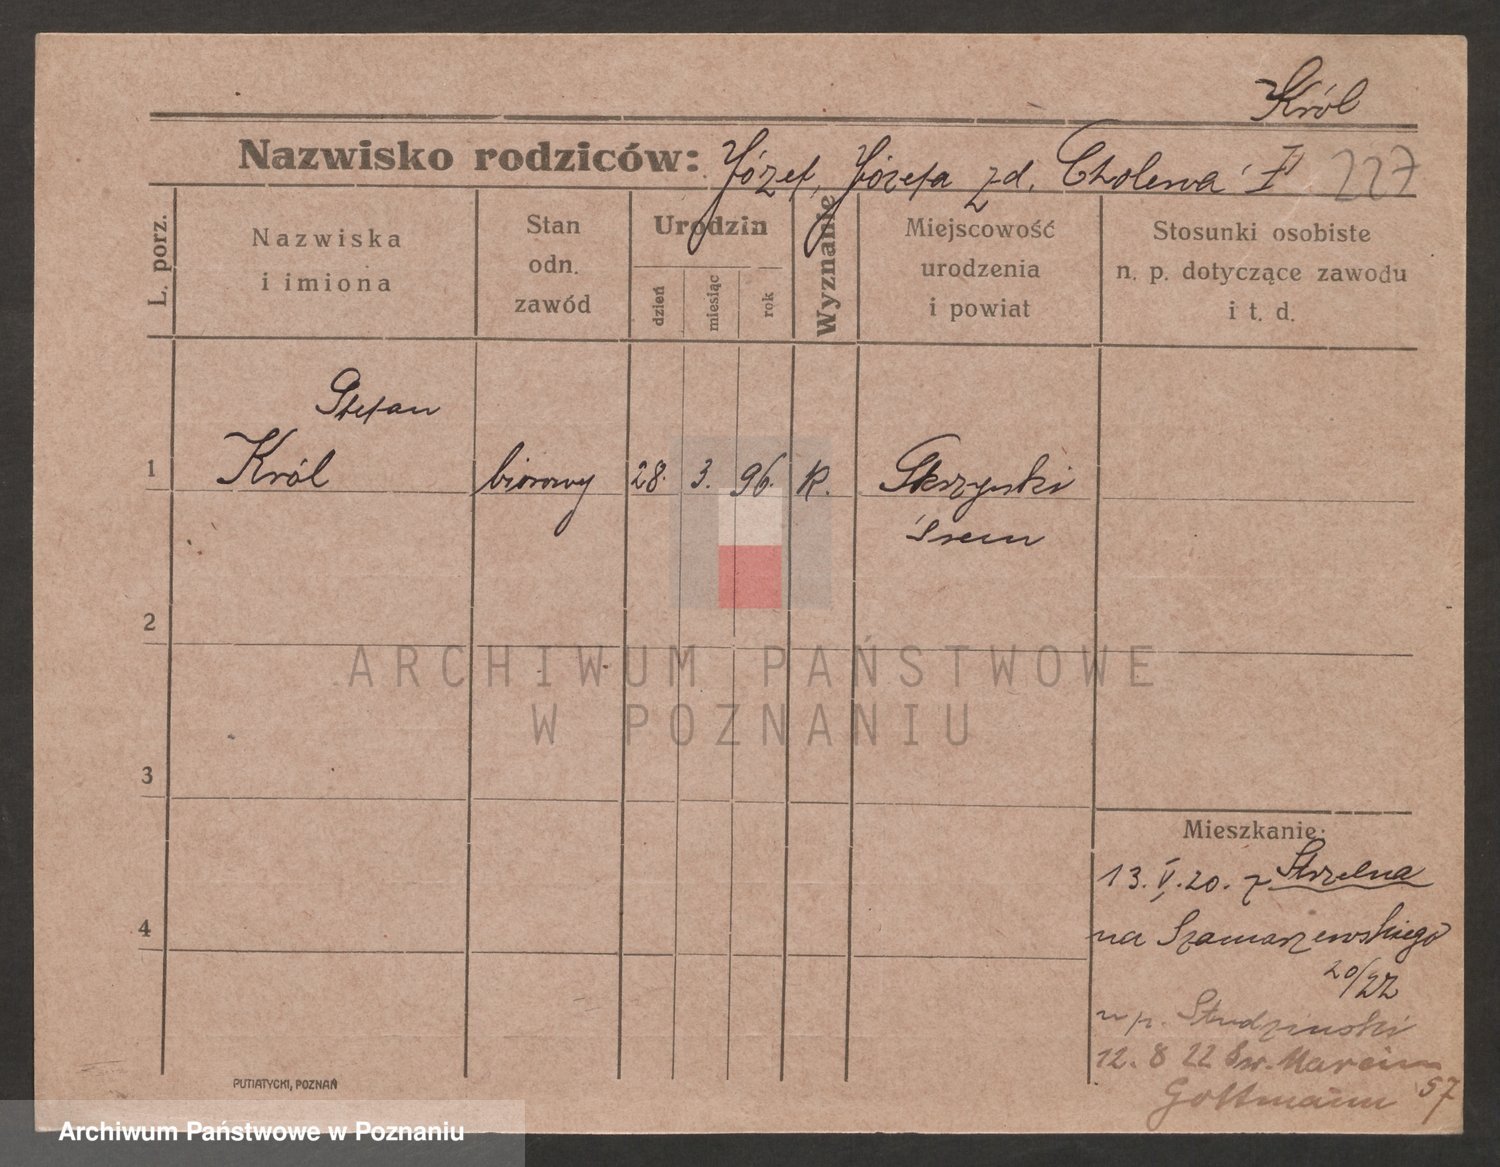 Król
Nazwisko rodziców: Józef, Józefa zd. Cholewa 227
L. porz.
Nazwiska
i imiona
Stan
odn.
zawód
Urodzin
dzień
miesiąc
rok
Wyznanie
Miejscowość
urodzenia
i powiat
Stosunki osobiste
n. p. dotyczące zawodu
i t. d.
Stefan
1 Król biurowy 28. 3. 96. K. Skrzynki
Śrem
2
ARCHIWUM PAŃSTWOWE
W POZNANIU
3
Mieszkanie:
13. V. 20. z Strzelna
4
na Szamarzewskiego
20/22
u p. Studzinski
12. 8 22 Św. Marcin 57
Gottmann
PUTIATYCKI, POZNAŃ
Archiwum Państwowe w Poznaniu